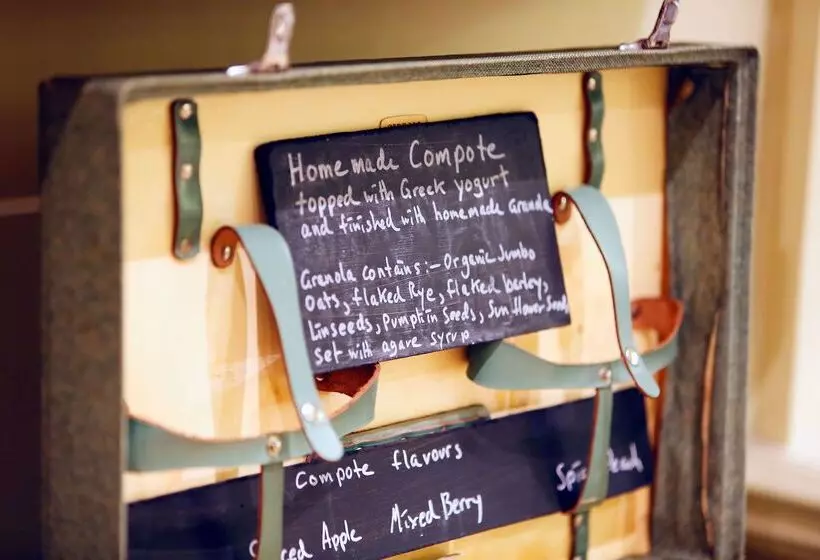 Homemade Compote
topped with Greek yogurt
and finished with homemade
Granola contains:- Organic Jumbo
Oats, flaked Rye, flaked barley,
Linseeds, Pumpkin Seeds, Sunflower Seeds
set with agave syrup.
Compote flavours
Apple Mixed Berry